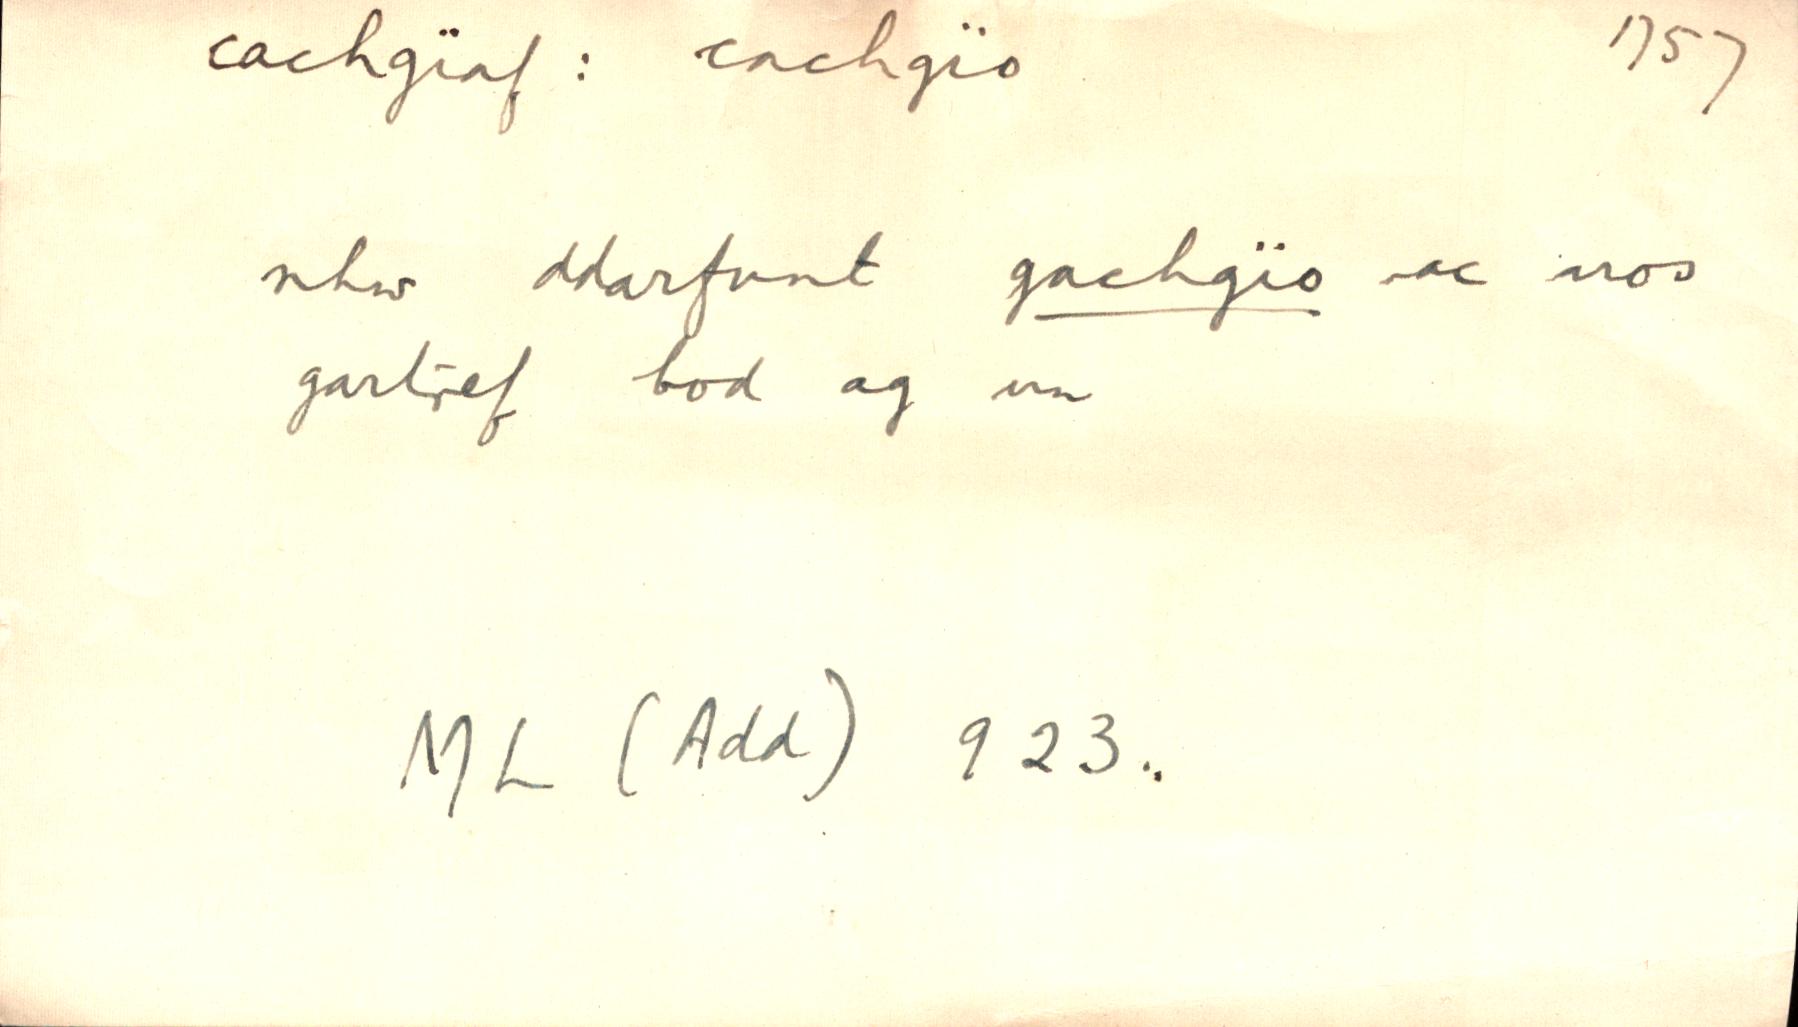 cachgïaf: cachgïo 1757
nhw ddarfunt gachgïo ac uros
gartref bod ag un
ML (Add) 923.